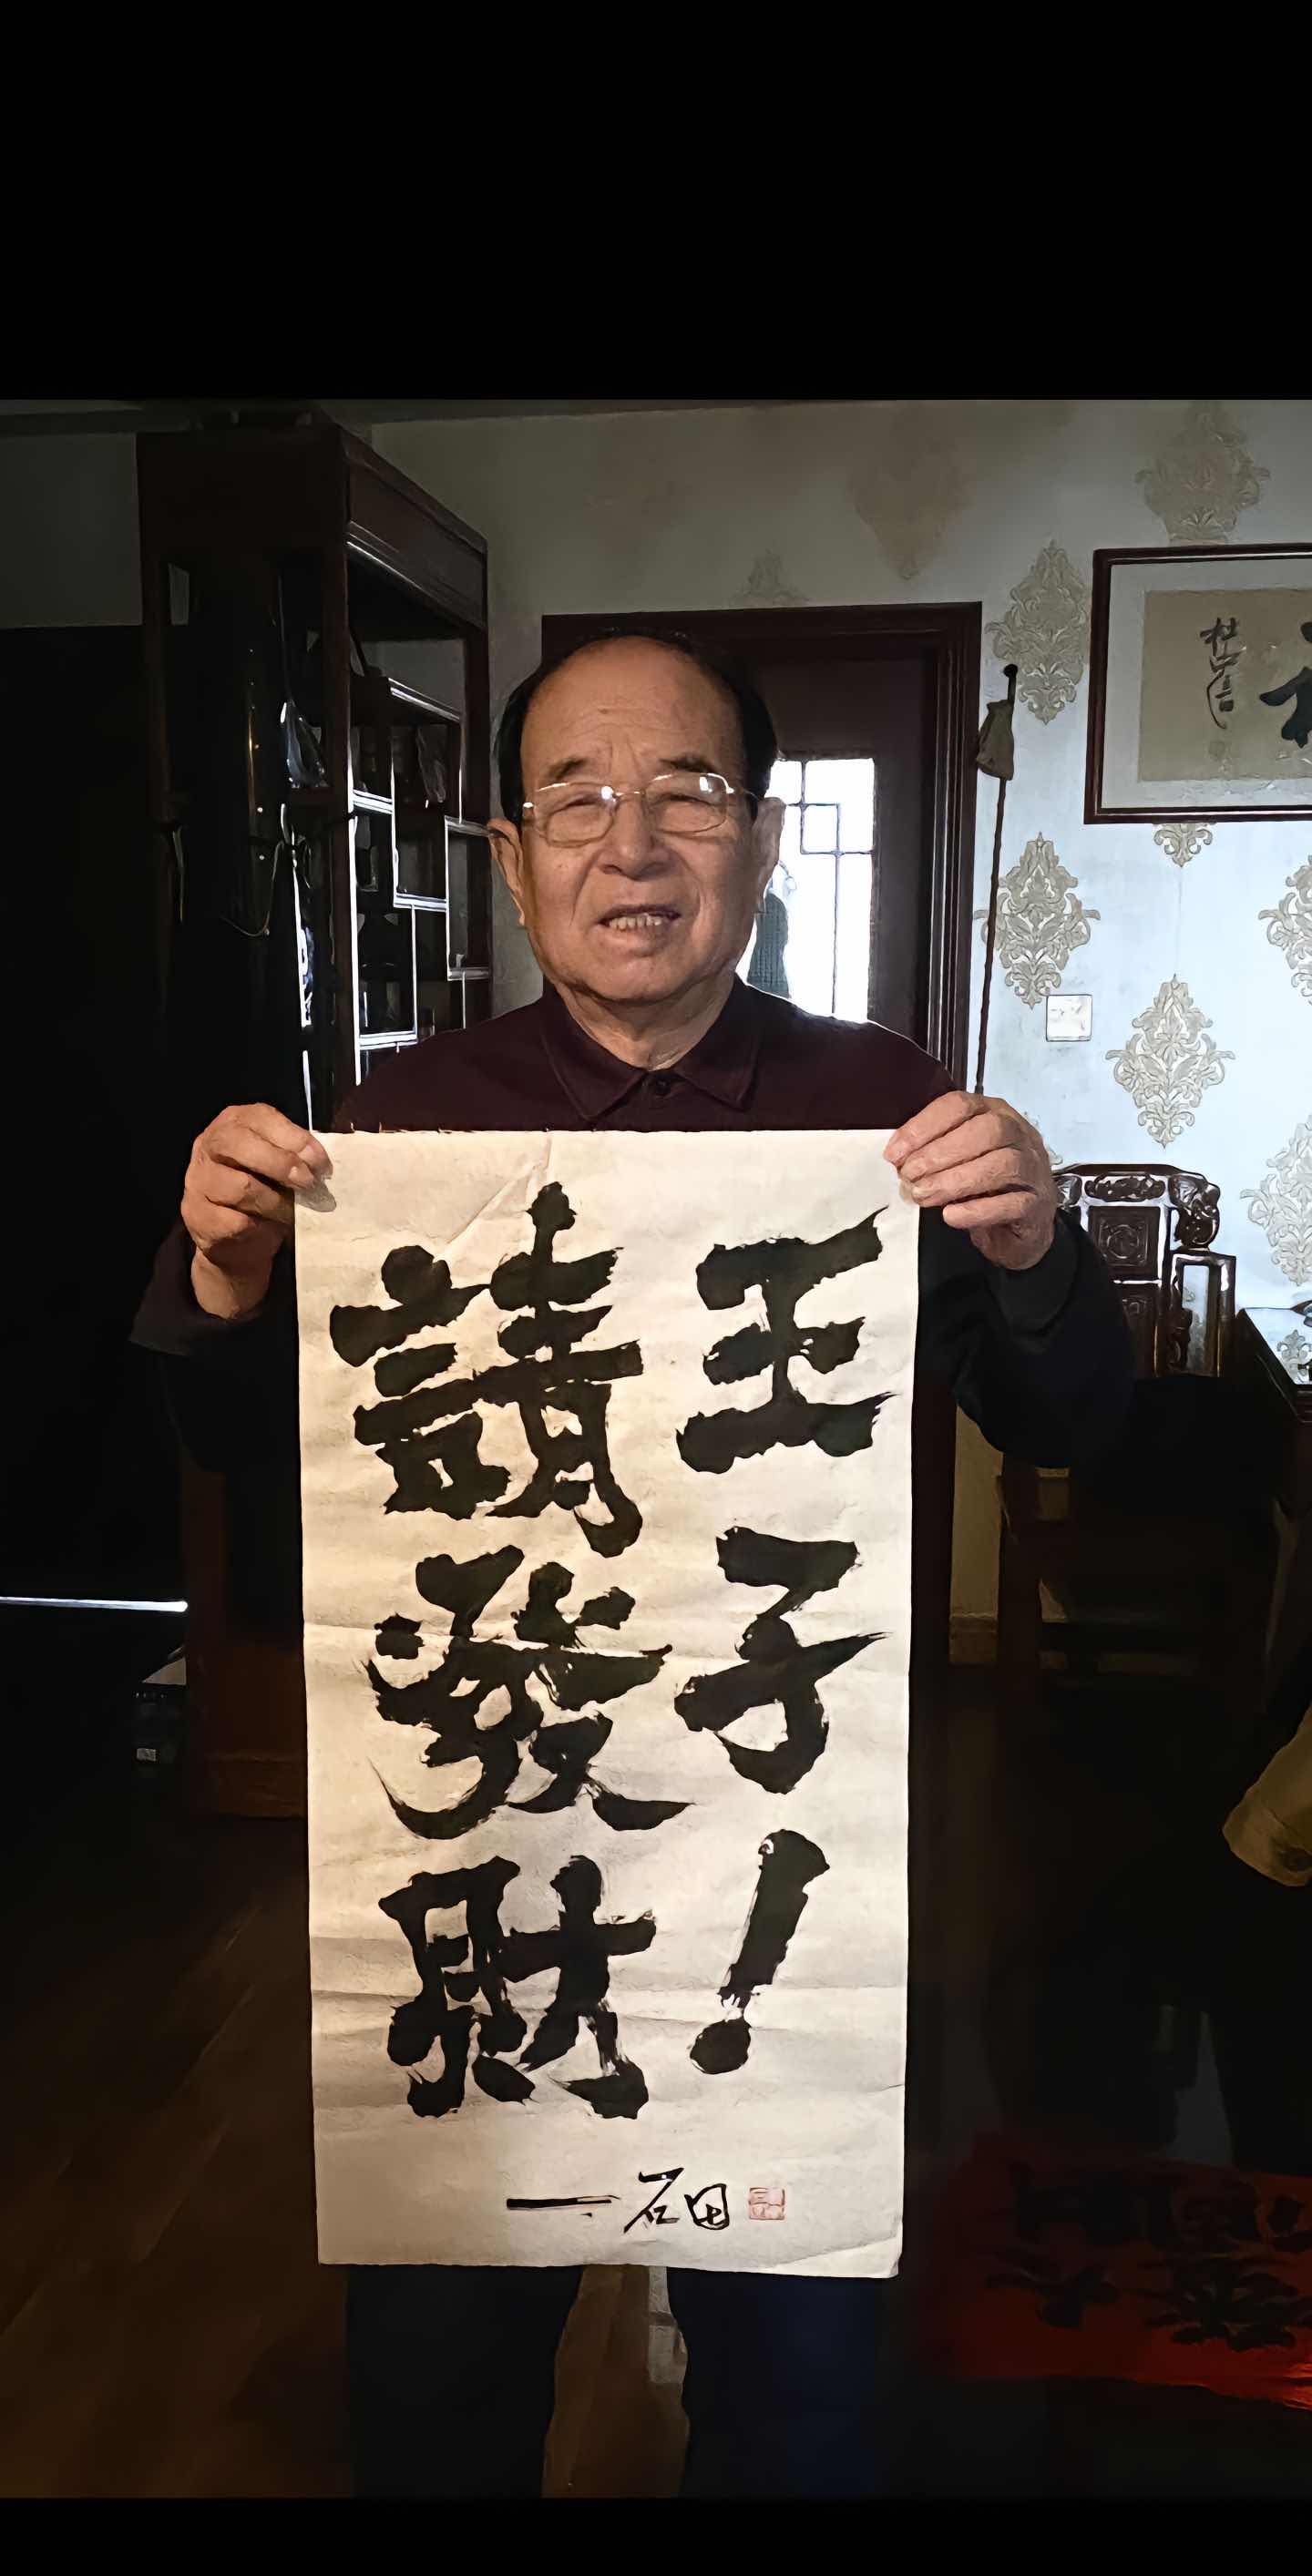 王子！
請發財
一石田